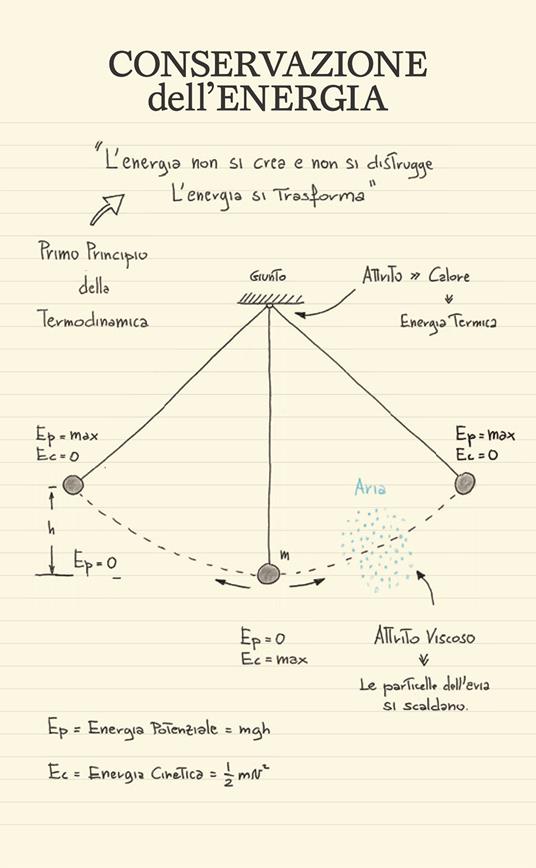 CONSERVAZIONE
dell'ENERGIA
"L'energia non si crea e non si distrugge
L'energia si Trasforma"
Primo Principio
della
Termodinamica
Giunto
Attrito » Calore
Energia Termica
Ep = max
Ec = 0
Ep = max
Ec = 0
Aria
h
Ep = 0
m
Ep = 0
Ec = max
Attrito Viscoso
Le particelle dell'evia
si scaldano.
Ep = Energia Potenziale = mgh
Ec = Energia Cinetica = 1/2 mv²